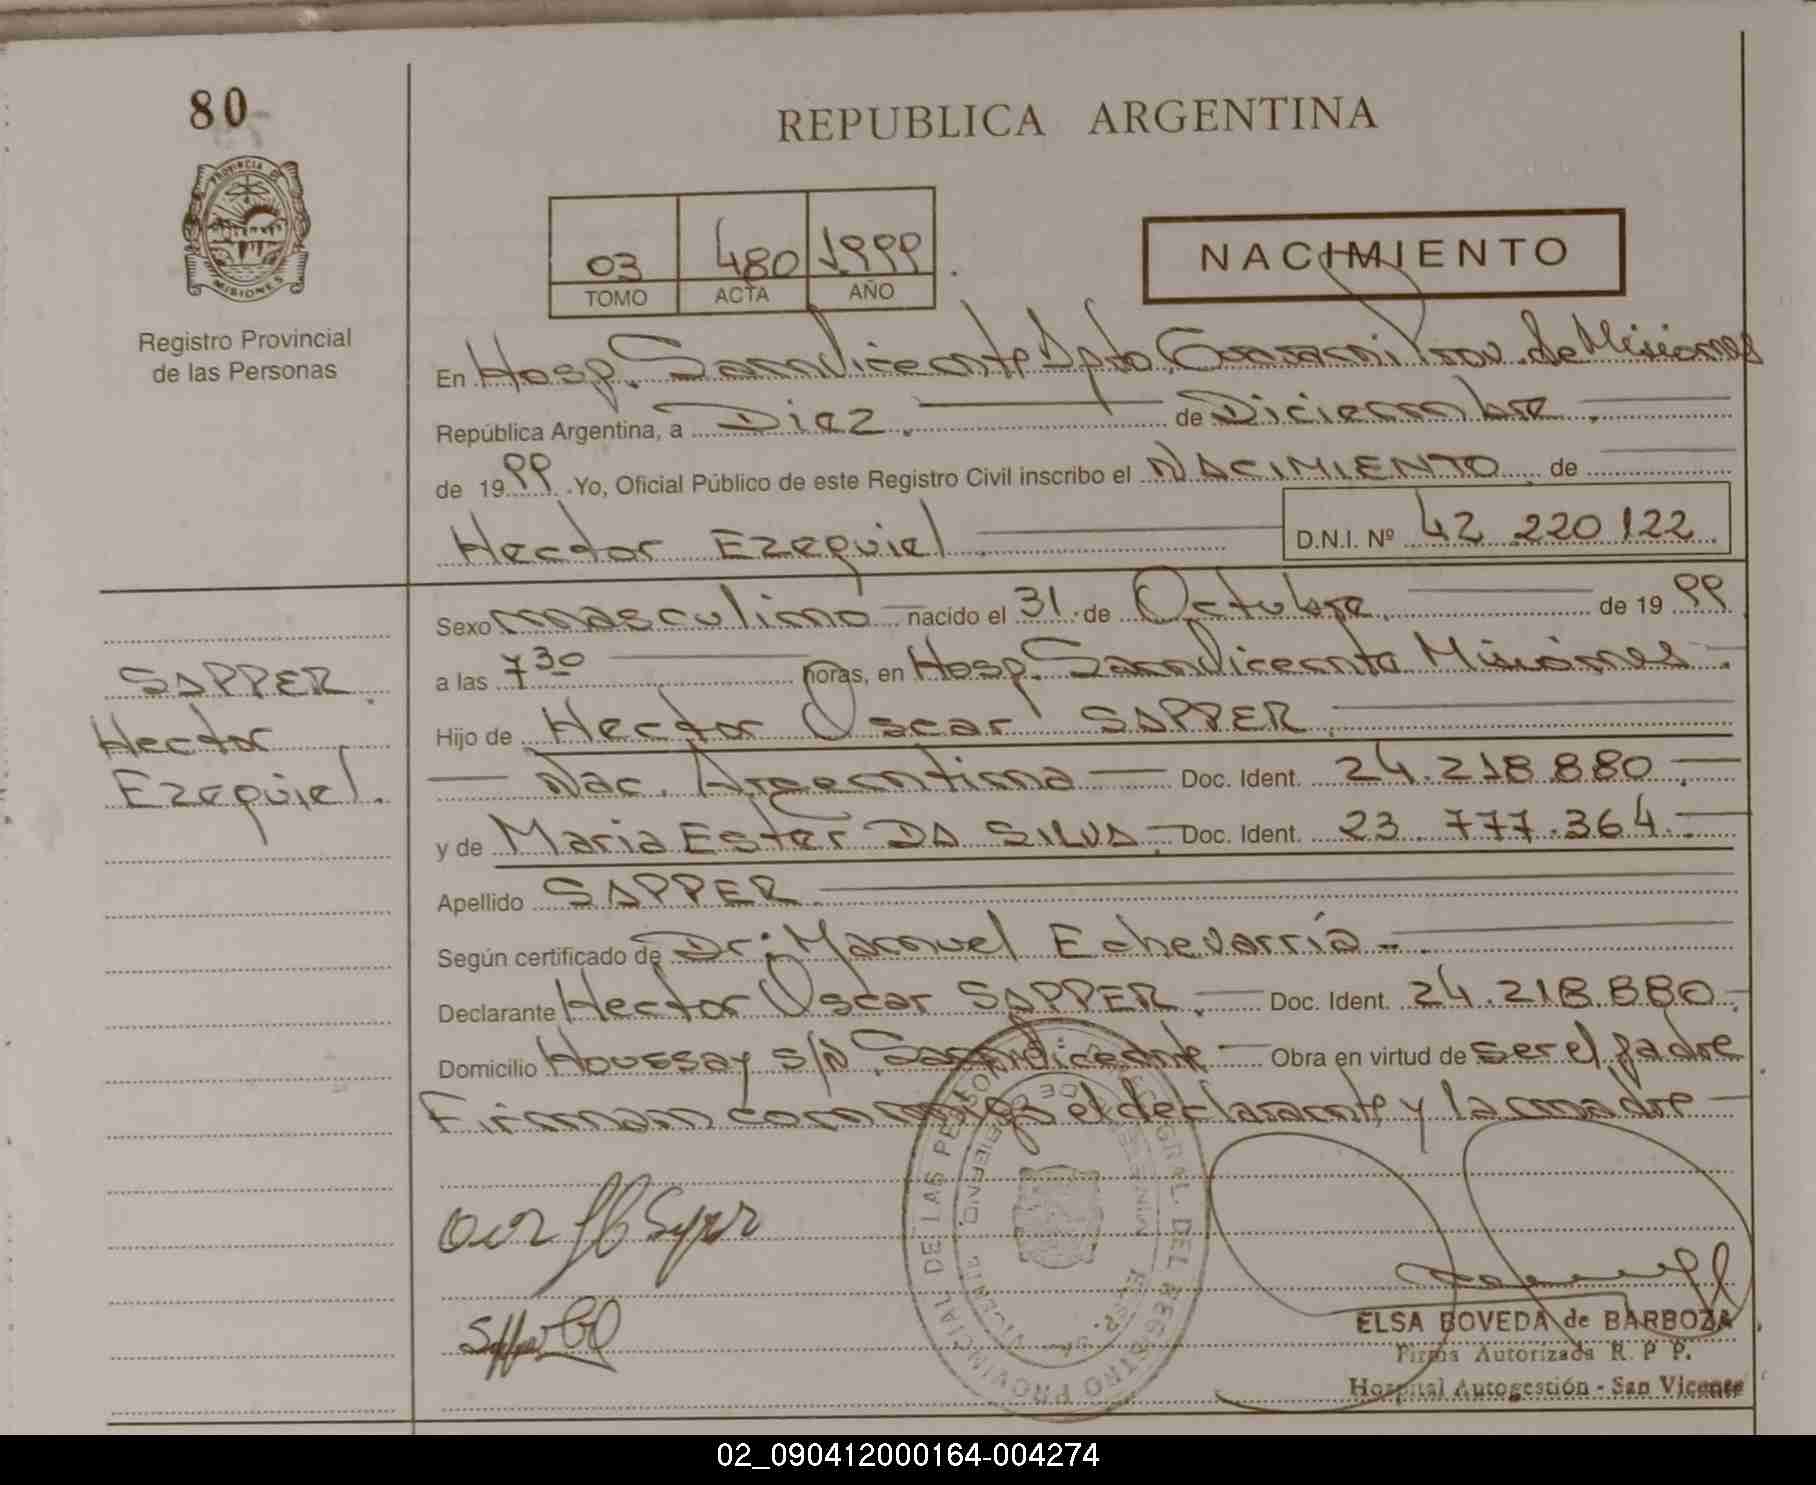 80
REPUBLICA ARGENTINA
PROVINCIA DE
MISIONES
Registro Provincial
de las Personas
03 480 1999
TOMO ACTA AÑO
NACIMIENTO
En Hosp. San Vicente Dpto. Guaraní Prov. de Misiones
República Argentina, a Diez. de Diciembre.
de 1999. Yo, Oficial Público de este Registro Civil inscribo el NACIMIENTO de
Hector Ezequiel. D.N.I. Nº 42 220 122
Sexo masculino nacido el 31 de Octubre. de 1999
a las 7 30 horas, en Hosp. San Vicente Misiones.
SAPPER.
Hector
Ezequiel.
Hijo de Hector Oscar SAPPER.
Nac. Argentina Doc. Ident. 24.218.880.
y de Maria Ester DA SILVA. Doc. Ident. 23.777.364.
Apellido SAPPER.
Según certificado de Dr: Manuel Echevarría.
Declarante Hector Oscar SAPPER. Doc. Ident. 24.218.880.
Domicilio Houssay s/n San Vicente Obra en virtud de ser el padre
Firman conmigo el declarante y la madre
ELSA BOVEDA de BARBOZA
Firma Autorizada R. P. P.
Hospital Autogestión - San Vicente
02_090412000164-004274